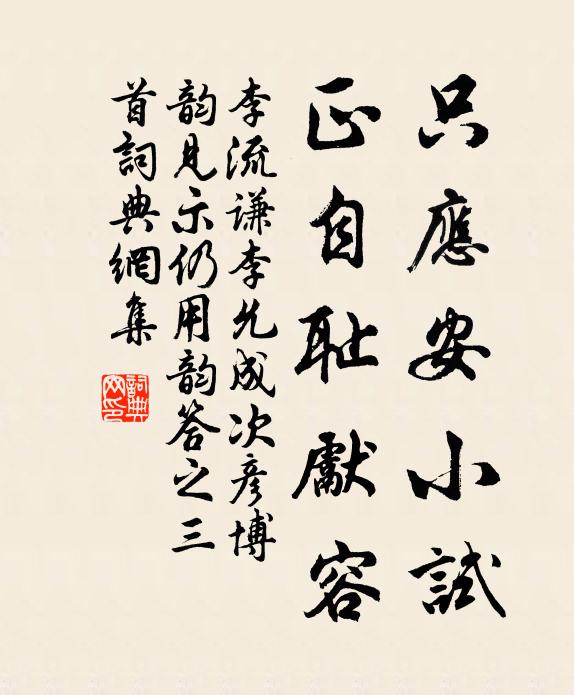 只應安小試
正自耻獻容
李流谦李允成次彦博
韵見示仍用韵答之三
首詞典網集
詞典網印